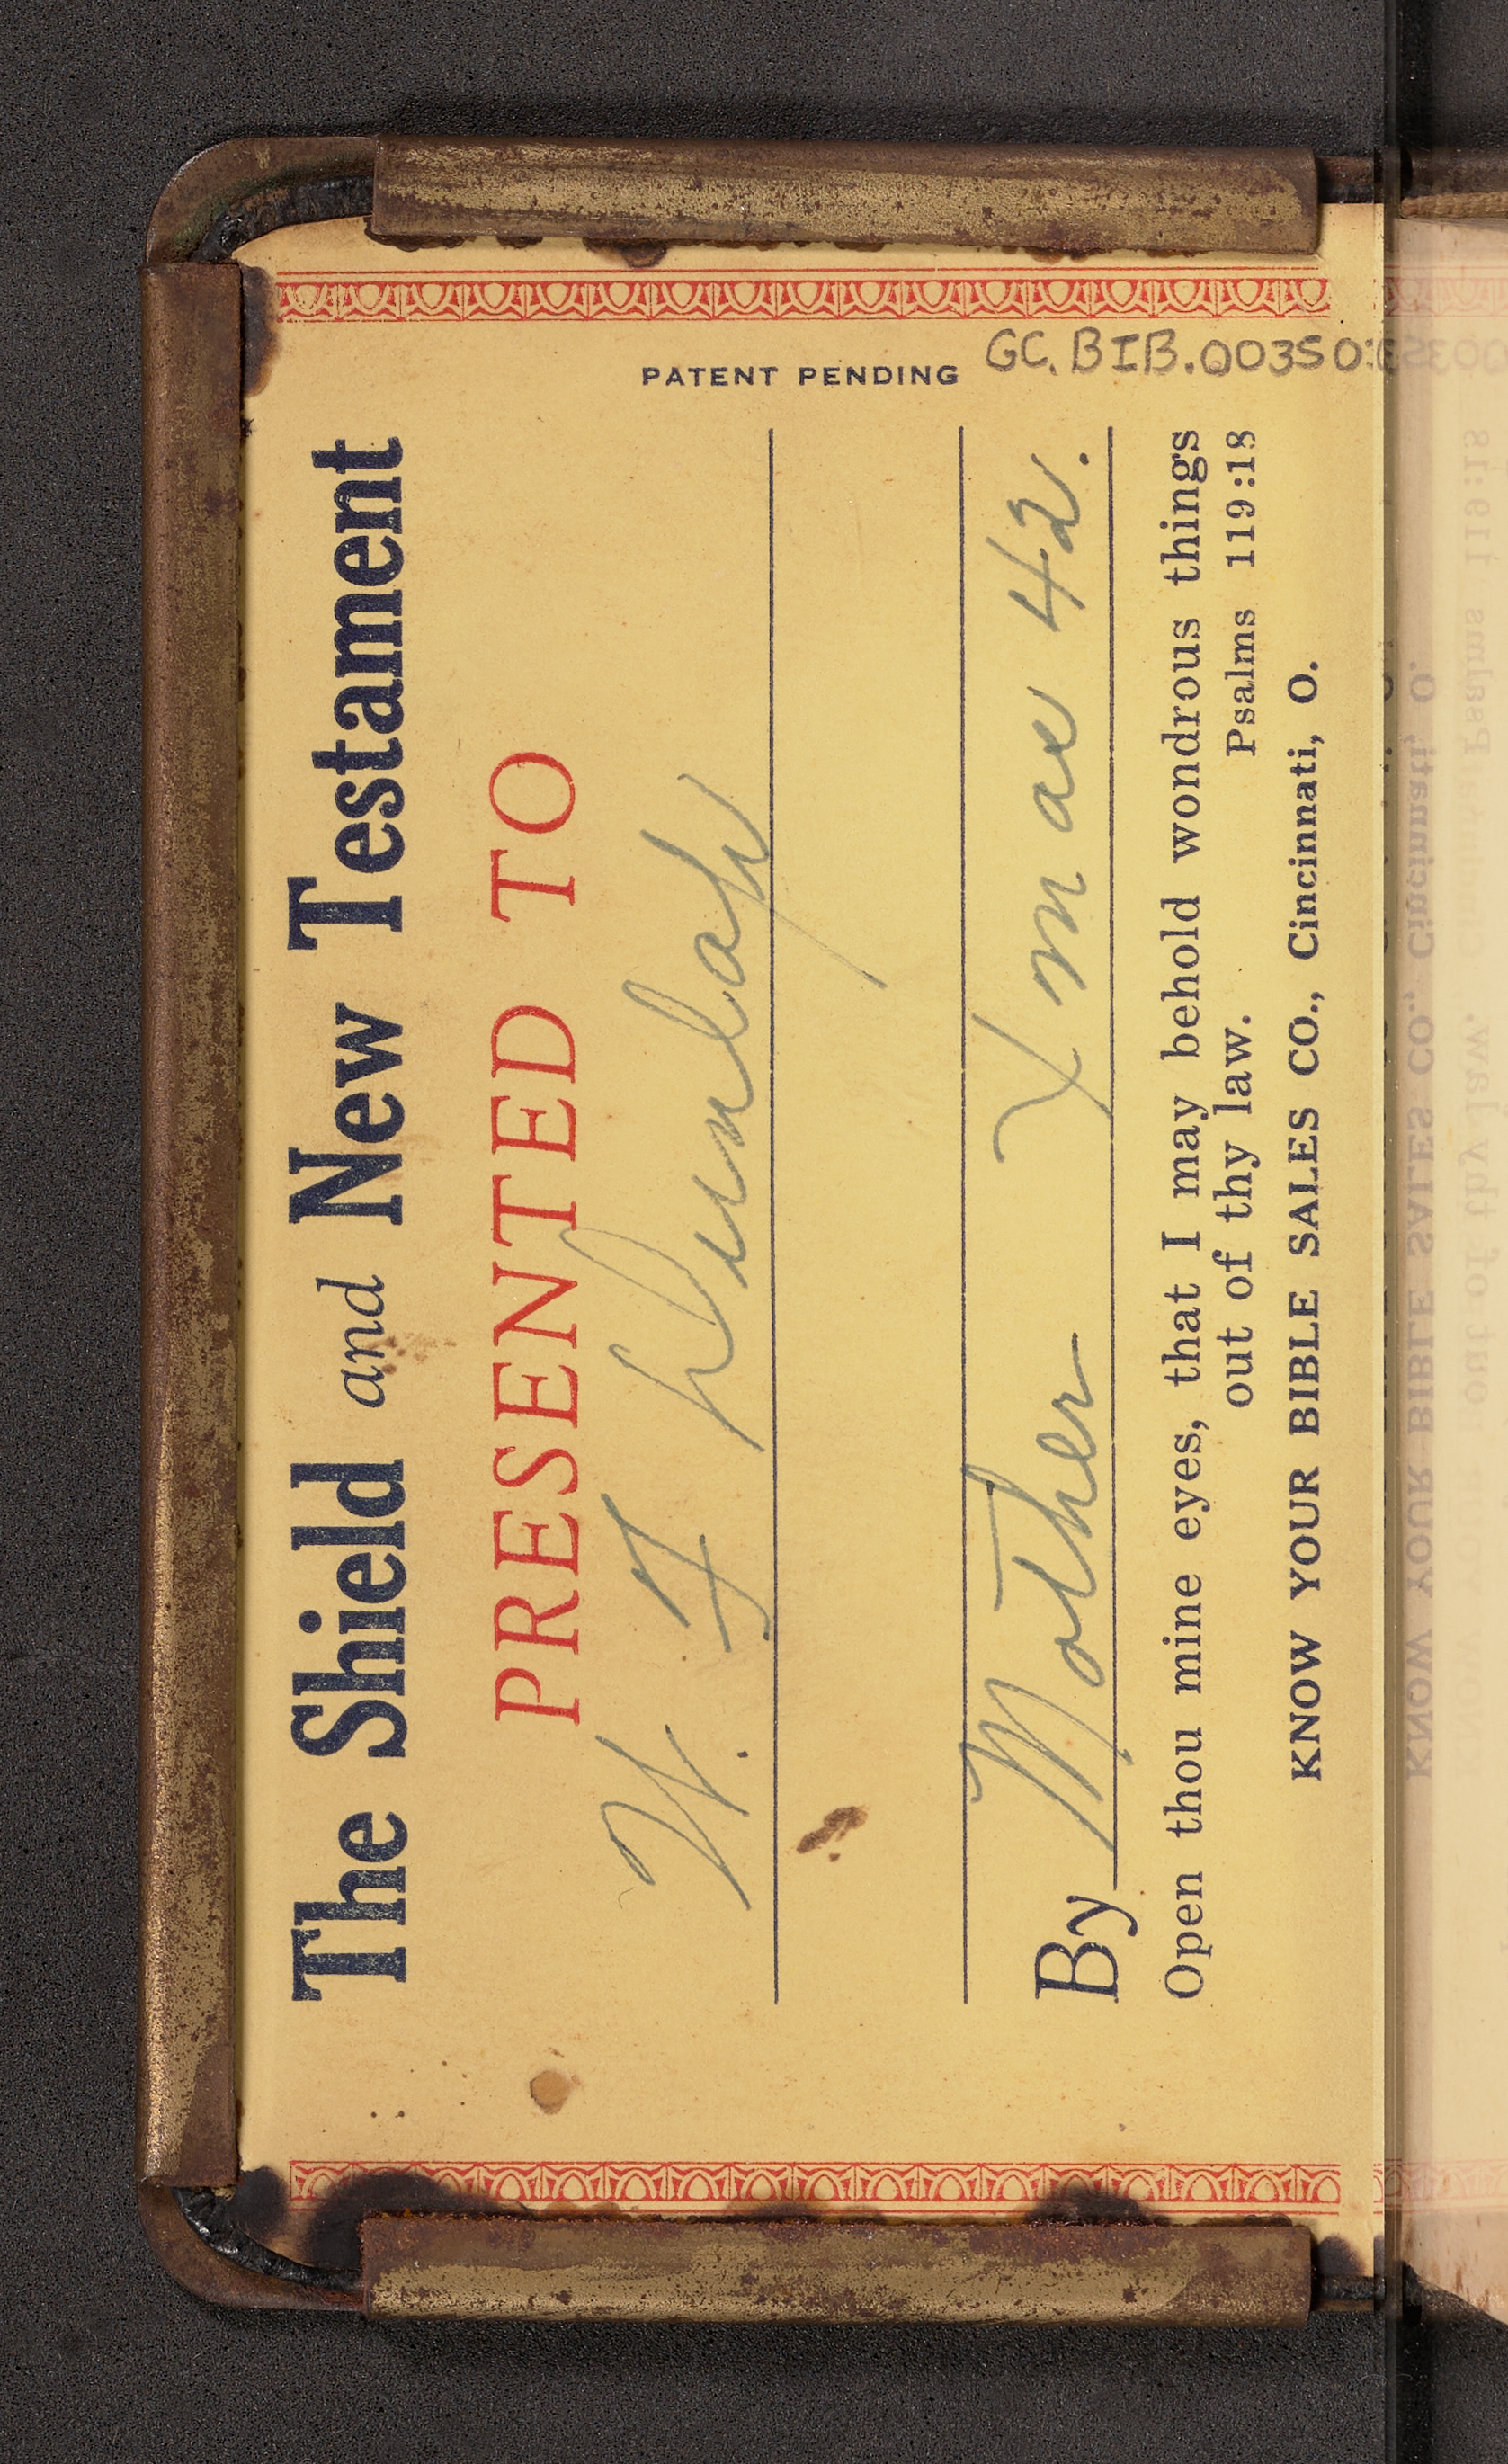 The Shield and New Testament
PRESENTED TO
PATENT PENDING
W. F.
GC.BIB.003503
By Mother Xmas 42.
Open thou mine eyes, that I may behold wondrous things
out of thy law. Psalms 119:18
KNOW YOUR BIBLE SALES CO., Cincinnati, O.